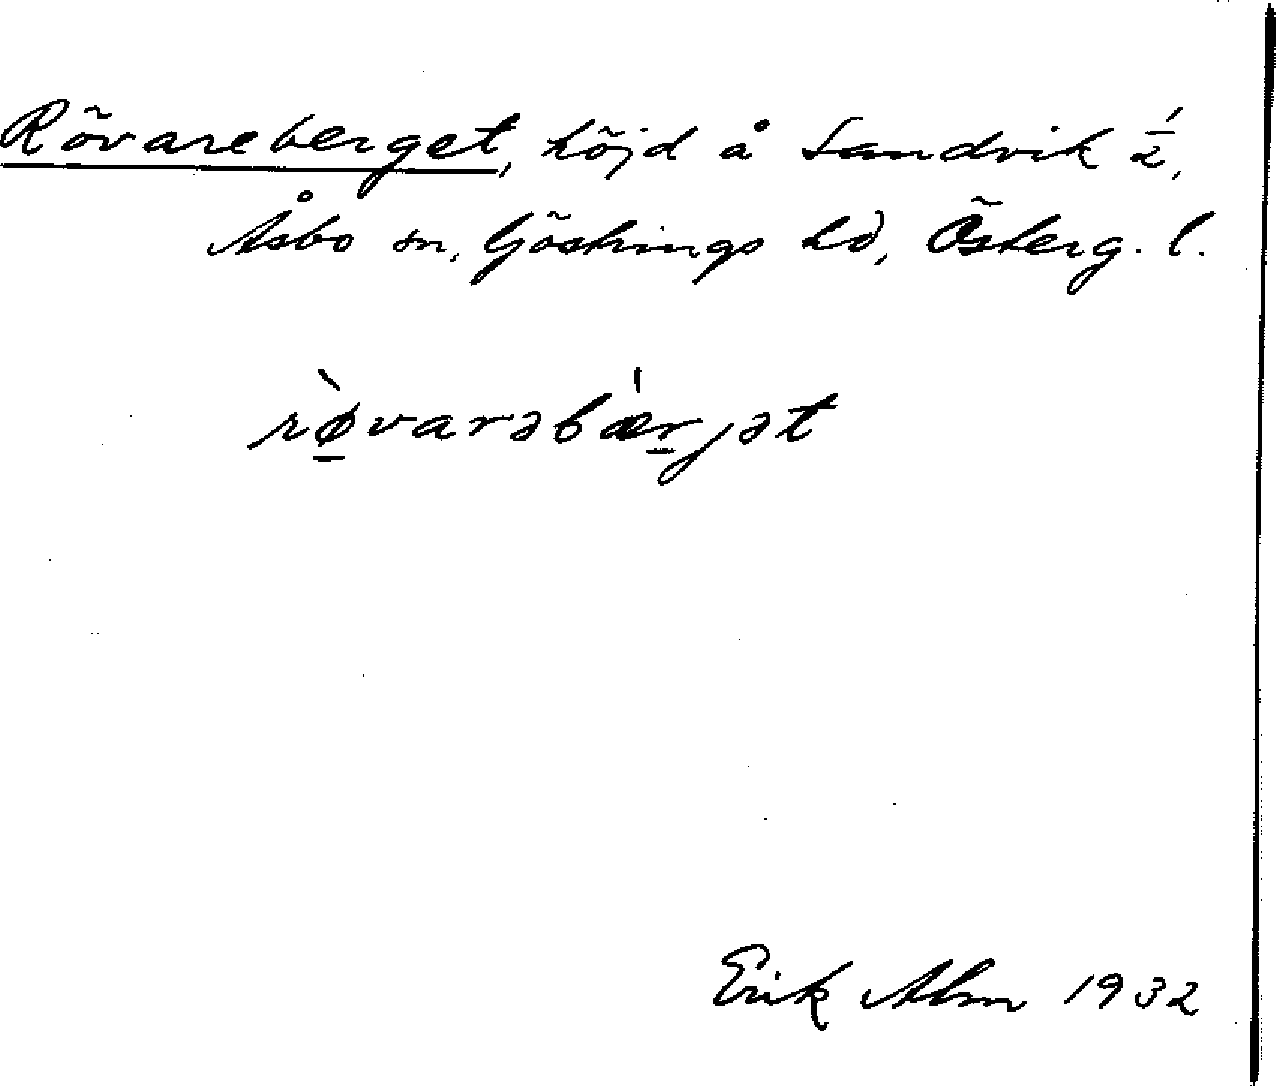 Rövareberget, höjd å Sandvik 1/2,
Åsbo sn, Göstrings hd, Österg. l.
rø̠̀varəbæ̍r̠jət
Erik Alm 1932